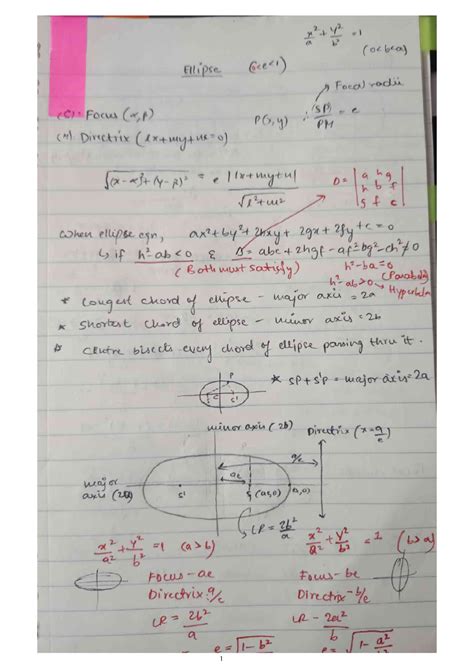 x²/a + y²/b² = 1
(0<b<a)
Ellipse (0<e<1)
Focal radii
(i) Focus (α,β)
P(x,y) ∴ SP/PM = e
(ii) Directrix (lx+my+n=0)
√((x-α)²+(y-β)²) = e |lx+my+n| / √(l²+m²)
Δ = | a h g
h b f
g f c |
When ellipse eqn, ax²+by²+2hxy+2gx+2fy+c=0
↳ if h²-ab<0 & Δ=abc+2hgf-af²-bg²-ch²≠0
(Both must satisfy)
h²-ba=0 (Parabola)
h²-ab>0 → Hyperbola
* Longest chord of ellipse - major axis = 2a
* Shortest chord of ellipse - minor axis = 2b
* Centre bisects every chord of ellipse passing thru it.
P
S S'
* SP+S'P = major axis=2a
minor axis (2b) Directrix (x=a/e)
a/e
major
axis (2a)
ae
S' S (ae,0) (a,0)
LR = 2b²/a
x²/a² + y²/b² = 1 (a>b)
x²/a² + y²/b² = 1 (b>a)
Focus-ae Focus-be
Directrix-a/e Directrix-b/e
LR = 2b²/a LR - 2a²/b
e = √(1-b² e = √(1-a²
1